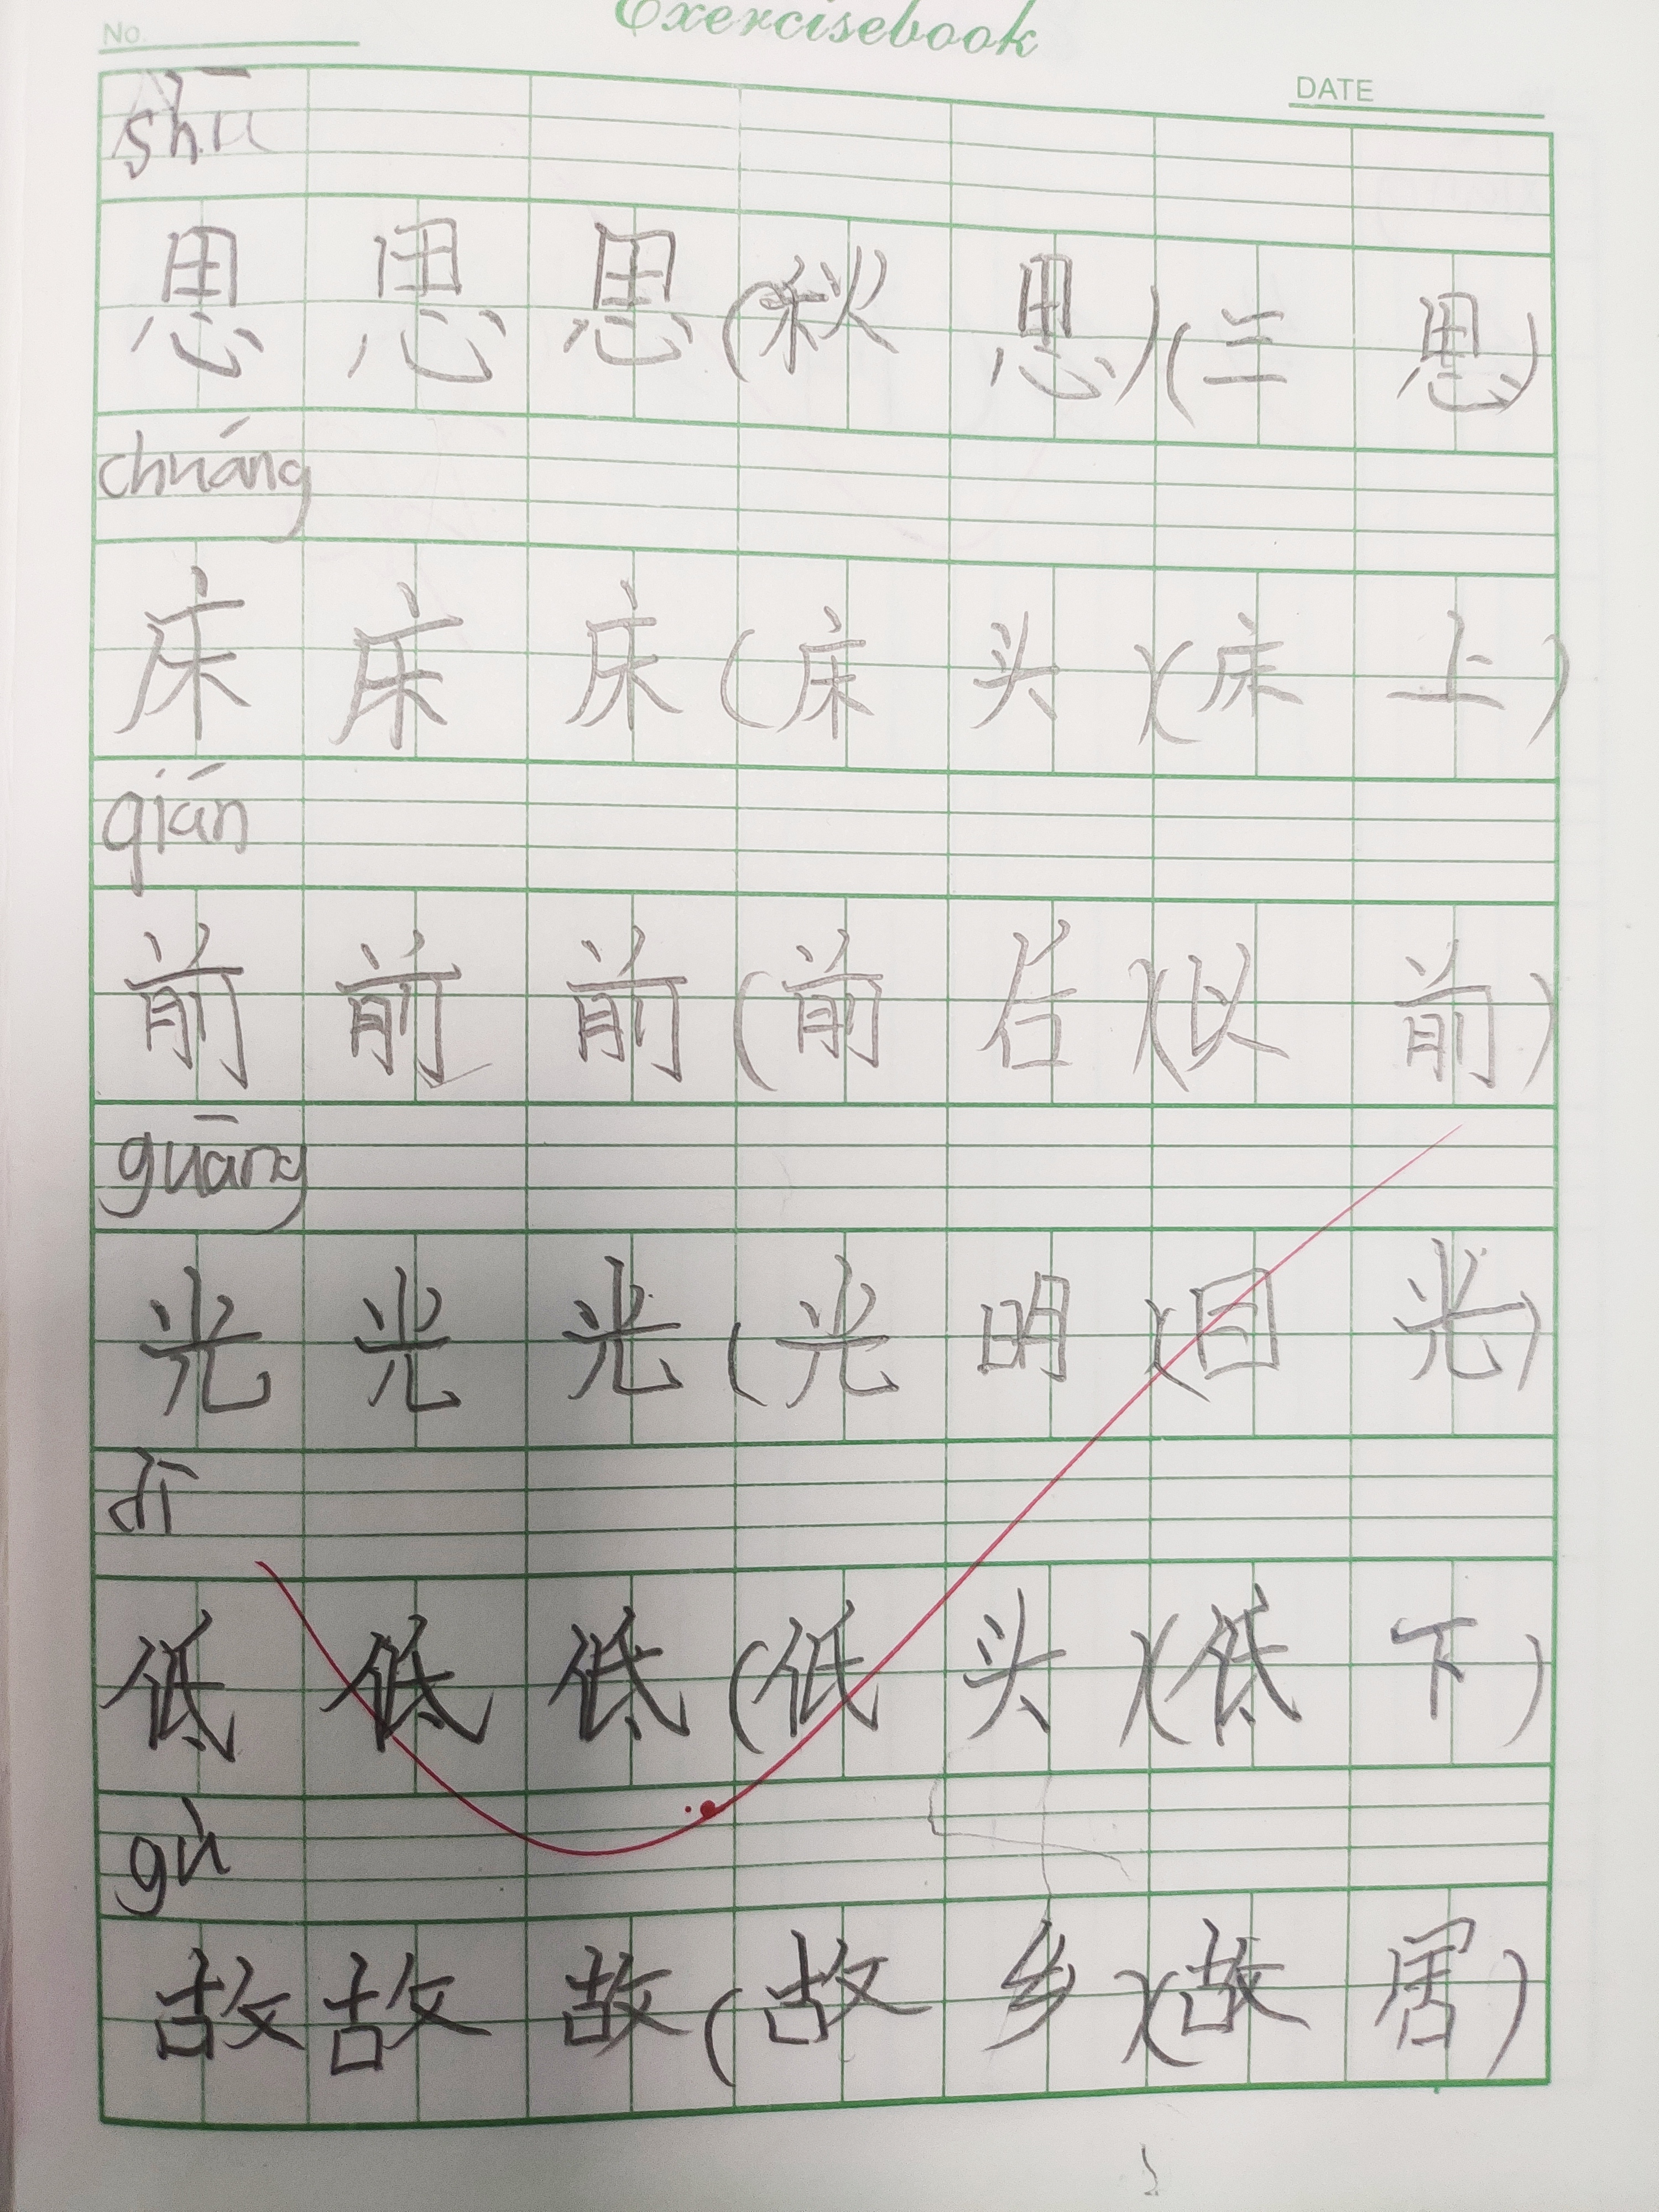 Exercisebook
No.
DATE
shū
思 思 思 (秋 思) (三 思)
chuáng
床 床 床 (床 头) (床 上)
qián
前 前 前 (前 后) (以 前)
guāng
光 光 光 (光 明) (目 光)
dī
低 低 低 (低 头) (低 下)
gù
故 故 故 (故 乡) (故 居)